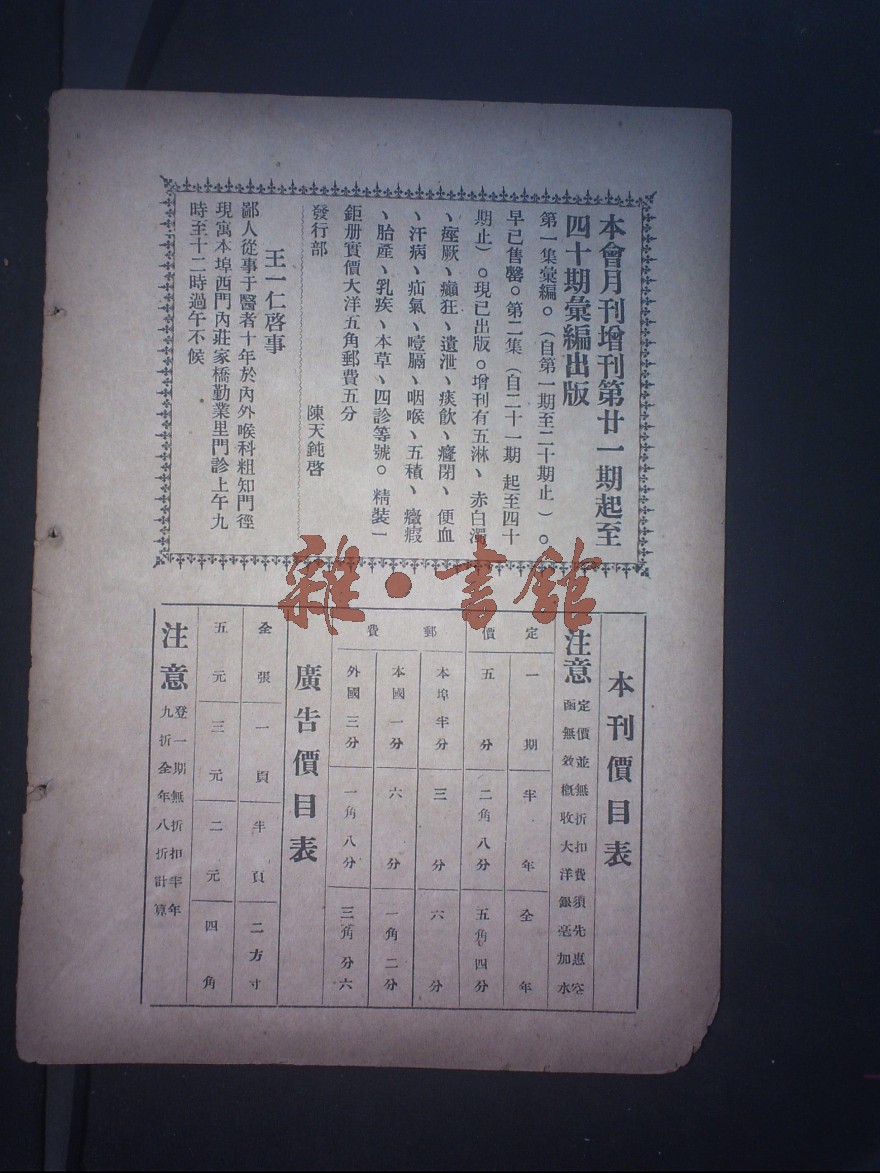 本會月刊增刊第廿一期起至
四十期彙編出版
第一集彙編。（自第一期至二十期止）。
早已售罄。第二集（自二十一期 起至四十
期止）。現已出版。增刊有五淋、赤白濁
、痙厥、癲狂、遺泄、痰飲、癃閉、便血
、汗病、疝氣、噎膈、咽喉、五積、癥瘕
、胎產、乳疾、本草、四診等號。精裝一
鉅册實價大洋五角郵費五分
發行部 陳天鈍啓
王一仁啓事
鄙人從事于醫者十年於內外喉科粗知門徑
現寓本埠西門內莊家橋勤業里門診上午九
時至十二時過午不候
雜·書館
本刊價目表
注意 定價並無折扣費須先惠空
函無效概收大洋銀毫加水
定價 一期 半年 全年
五分 二角八分 五角四分
郵費 本埠半分 三分 六分
本國一分 六分 一角二分
外國三分 一角八分 三角分六
廣告價目表
全張 一頁 半頁 二方寸
五元 三元 二元 四角
注意 登一期無折扣半年
九折全年八折計算